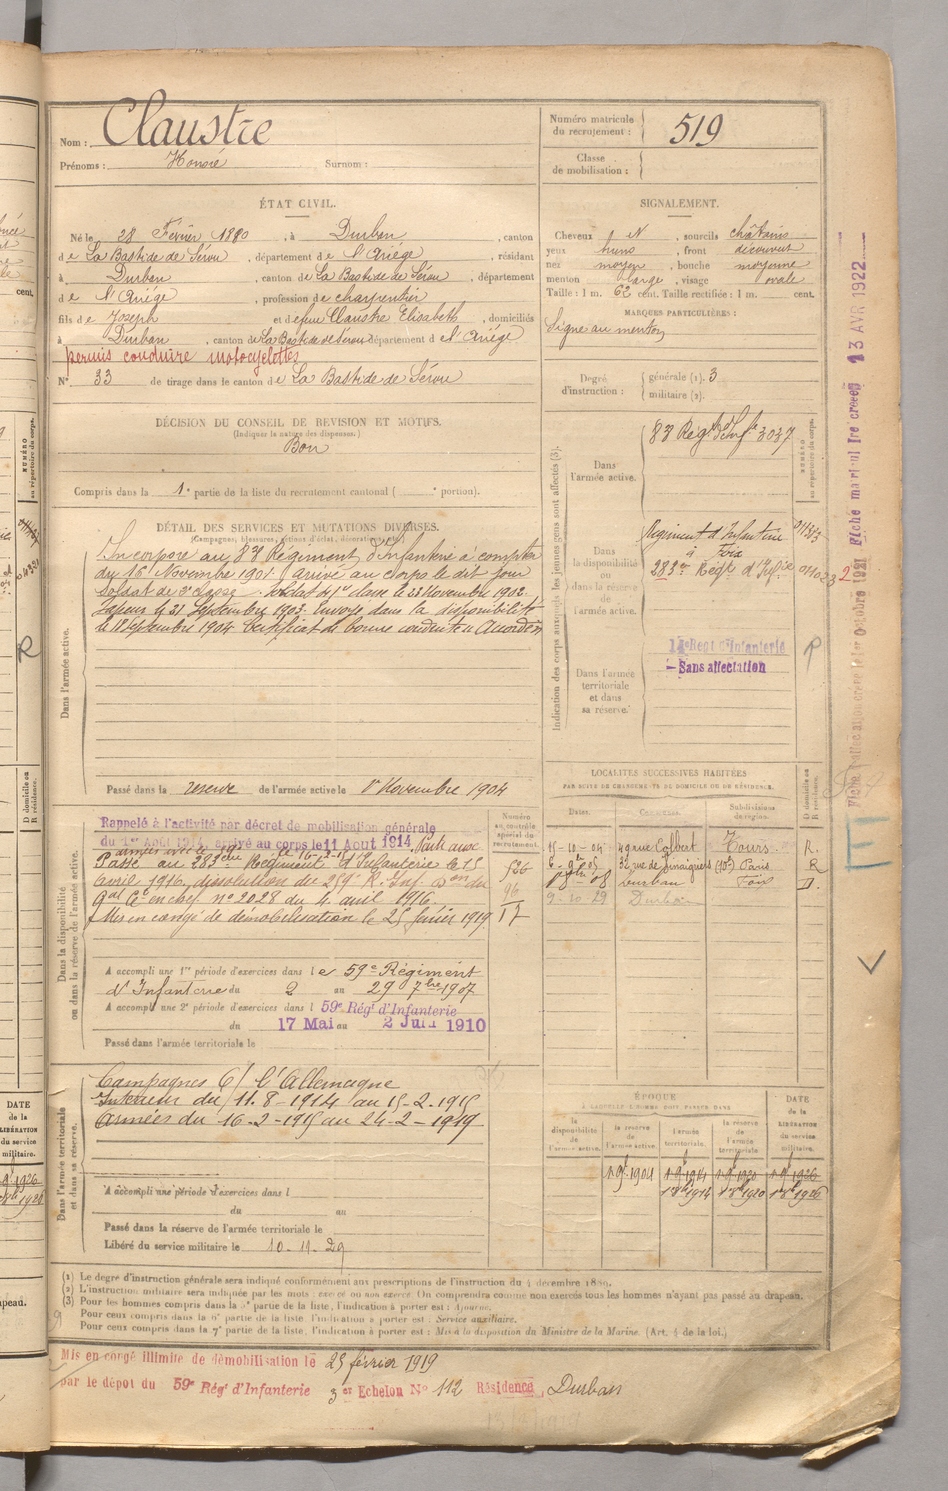 Nom : Claustre
Prénoms : Honoré Surnom :
Numéro matricule du recrutement : 519
Classe de mobilisation :
ÉTAT CIVIL.
Né le 28 Février 1880, à Durban, canton
de La Bastide de Sérou, département de l'Ariége, résidant
à Durban, canton de La Bastide de Sérou, département
de l'Ariége, profession de charpentier
fils de Joseph et de feue Claustre Elisabeth, domiciliés
à Durban, canton de La Bastide de Sérou département de l'Ariége
permis conduire motocyclettes
N° 33 de tirage dans le canton de La Bastide de Sérou
SIGNALEMENT.
Cheveux N, sourcils châtains
yeux bruns, front découvert
nez moyen, bouche moyenne
menton large, visage ovale
Taille : 1 m. 62 cent. Taille rectifiée : 1 m. cent.
MARQUES PARTICULIÈRES :
Signe au menton
Degré d'instruction : générale (1). 3
militaire (2).
DÉCISION DU CONSEIL DE REVISION ET MOTIFS.
(Indiquez la nature des dispenses.)
Bon
Compris dans la 1e partie de la liste du recrutement cantonal ( e portion).
DÉTAIL DES SERVICES ET MUTATIONS DIVERSES.
(Campagnes, blessures, actions d'éclat, décorations, etc.)
Dans l'armée active.
Incorporé au 83e Régiment d'Infanterie à compter
du 16 Novembre 1901. Arrivé au corps le dit jour
soldat de 2e classe. Soldat de 1e classe le 23 Novembre 1902.
Sapeur le 21 Septembre 1903. Envoyé dans la disponibilité
le 18 Septembre 1904 Certificat de bonne conduite Accordé
Passé dans la réserve de l'armée active le 1er Novembre 1904
Indication des corps auxquels les jeunes gens sont affectés (3).
Dans l'armée active.
83 Régt d'Infie 3037
NUMÉRO au répertoire du corps.
Dans la disponibilité ou dans la réserve de l'armée active.
Régiment d'Infanterie
à Foix
283e Régt d'Infie
Dans l'armée territoriale et dans sa réserve.
14e Regt d'Infanterie
Sans affectation
R
13 AVR 1922
LOCALITÉS SUCCESSIVES HABITÉES
PAR SUITE DE CHANGEMENTS DE DOMICILE OU DE RÉSIDENCE.
Dates. Communes. Subdivisions de région. D domicile ou R résidence.
15-10-04 49 rue Colbert Tours. R.
Paris R
Durban Foix D.
9-10-29 Durban
Dans la disponibilité ou dans la réserve de l'armée active.
Numéro au contrôle spécial du recrutement.
Rappelé à l'activité par décret de mobilisation générale
du 1er Août 1914, arrivé au corps le 11 Août 1914.
Passé au 283ème Régiment d'Infanterie le 15
avril 1916, dissolution du 259e R. Inf. Don du
Gal Ct en chef n° 2028 du 4 avril 1916.
Mis en congé de démobilisation le 25 février 1919.
A accompli une 1re période d'exercices dans le 59e Régiment
d'Infanterie du 2 au 29 7bre 1907
A accompli une 2e période d'exercices dans l 59e Régt d'Infanterie
du 17 Mai au 2 Juin 1910
Passé dans l'armée territoriale le
Dans l'armée territoriale et dans sa réserve.
Campagnes C/ l'Allemagne
Intérieur du 11-8-1914 au 15-2-1915
Armées du 16-2-1915 au 24-2-1919
A accompli une période d'exercices dans l
du au
Passé dans la réserve de l'armée territoriale le
Libéré du service militaire le 10-11-29
ÉPOQUE
À LAQUELLE L'HOMME DOIT PASSER DANS
la disponibilité de l'armée active. la réserve de l'armée active. l'armée territoriale. la réserve de l'armée territoriale. DATE de la LIBÉRATION du service militaire.
(1) Le degré d'instruction générale sera indiqué conformément aux prescriptions de l'instruction du 4 décembre 1889.
(2) L'instruction militaire sera indiquée par les mots : exercé ou non exercé. On comprendra comme non exercés tous les hommes n'ayant pas passé au drapeau.
(3) Pour les hommes compris dans la 5e partie de la liste, l'indication à porter est : Ajourné.
Pour ceux compris dans la 6e partie de la liste, l'indication à porter est : Service auxiliaire.
Pour ceux compris dans la 7e partie de la liste, l'indication à porter est : Mis à la disposition du Ministre de la Marine. (Art. 4 de la loi.)
Mis en congé illimité de démobilisation le 25 février 1919
par le dépôt du 59e Régt d'Infanterie 3er Echelon N° 112 Résidence, Durban